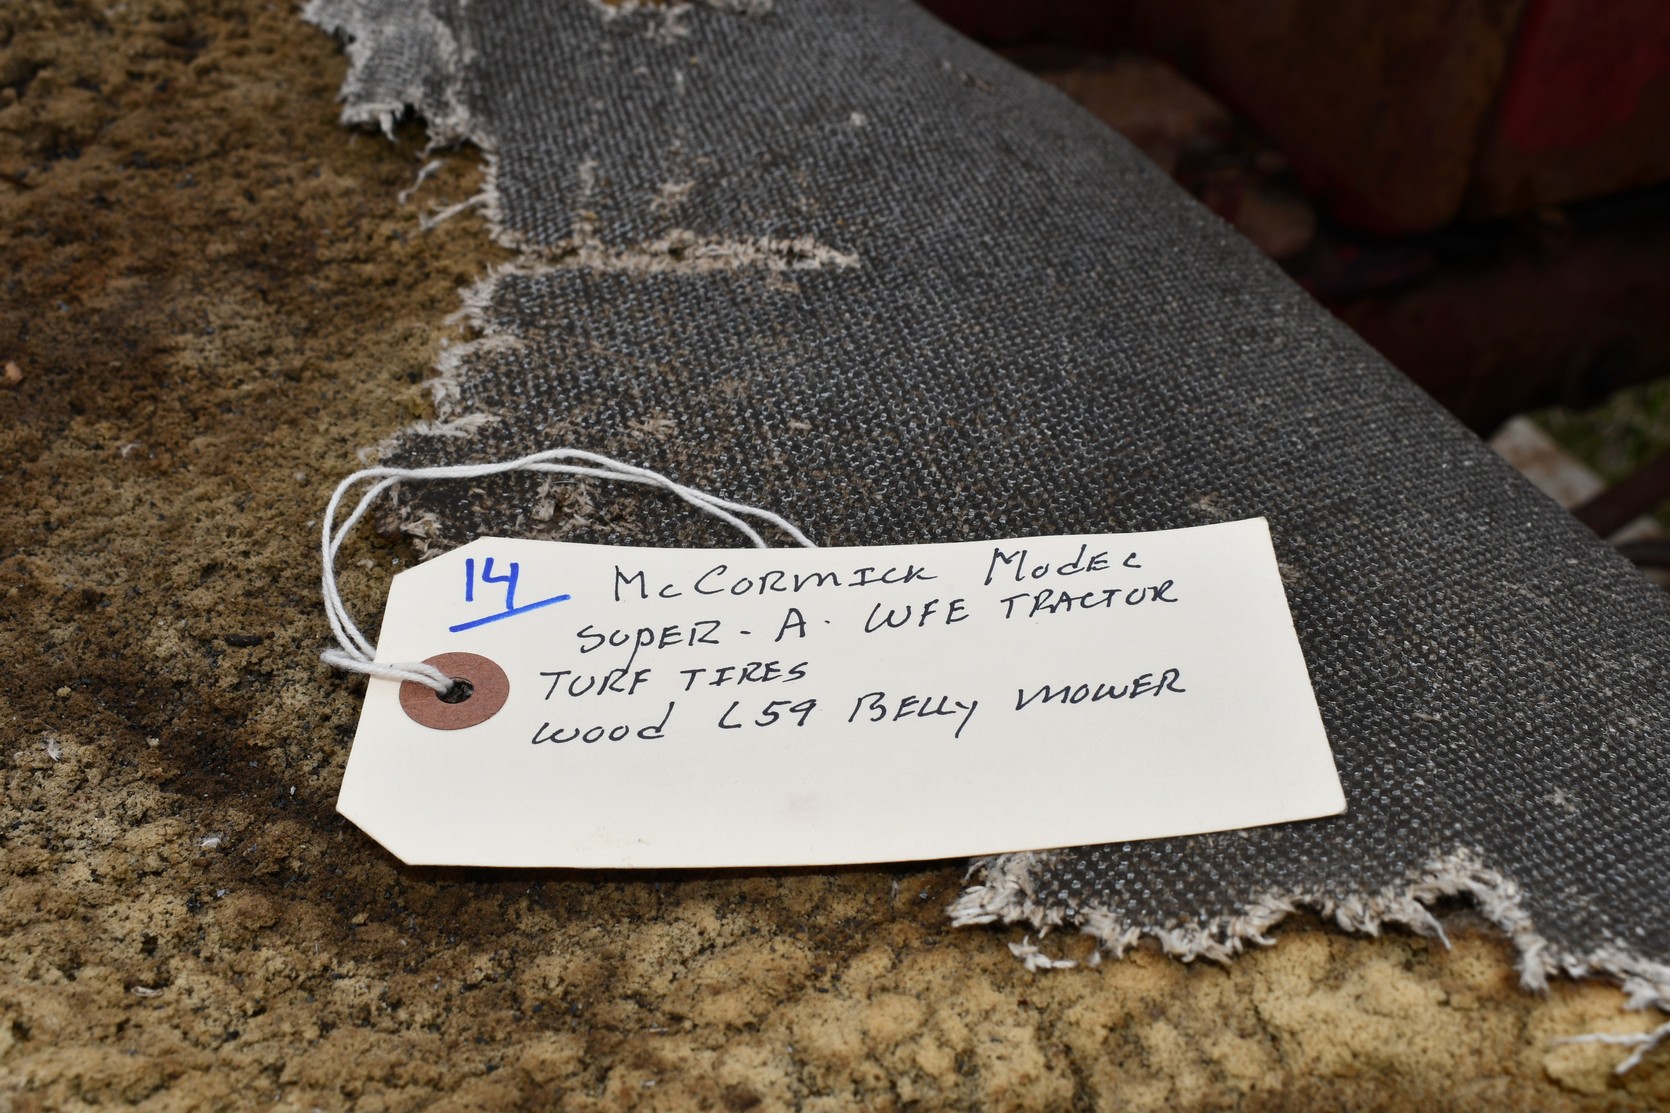 14 McCormick Model
Super - A. WFE Tractor
Turf Tires
Wood L59 Belly Mower